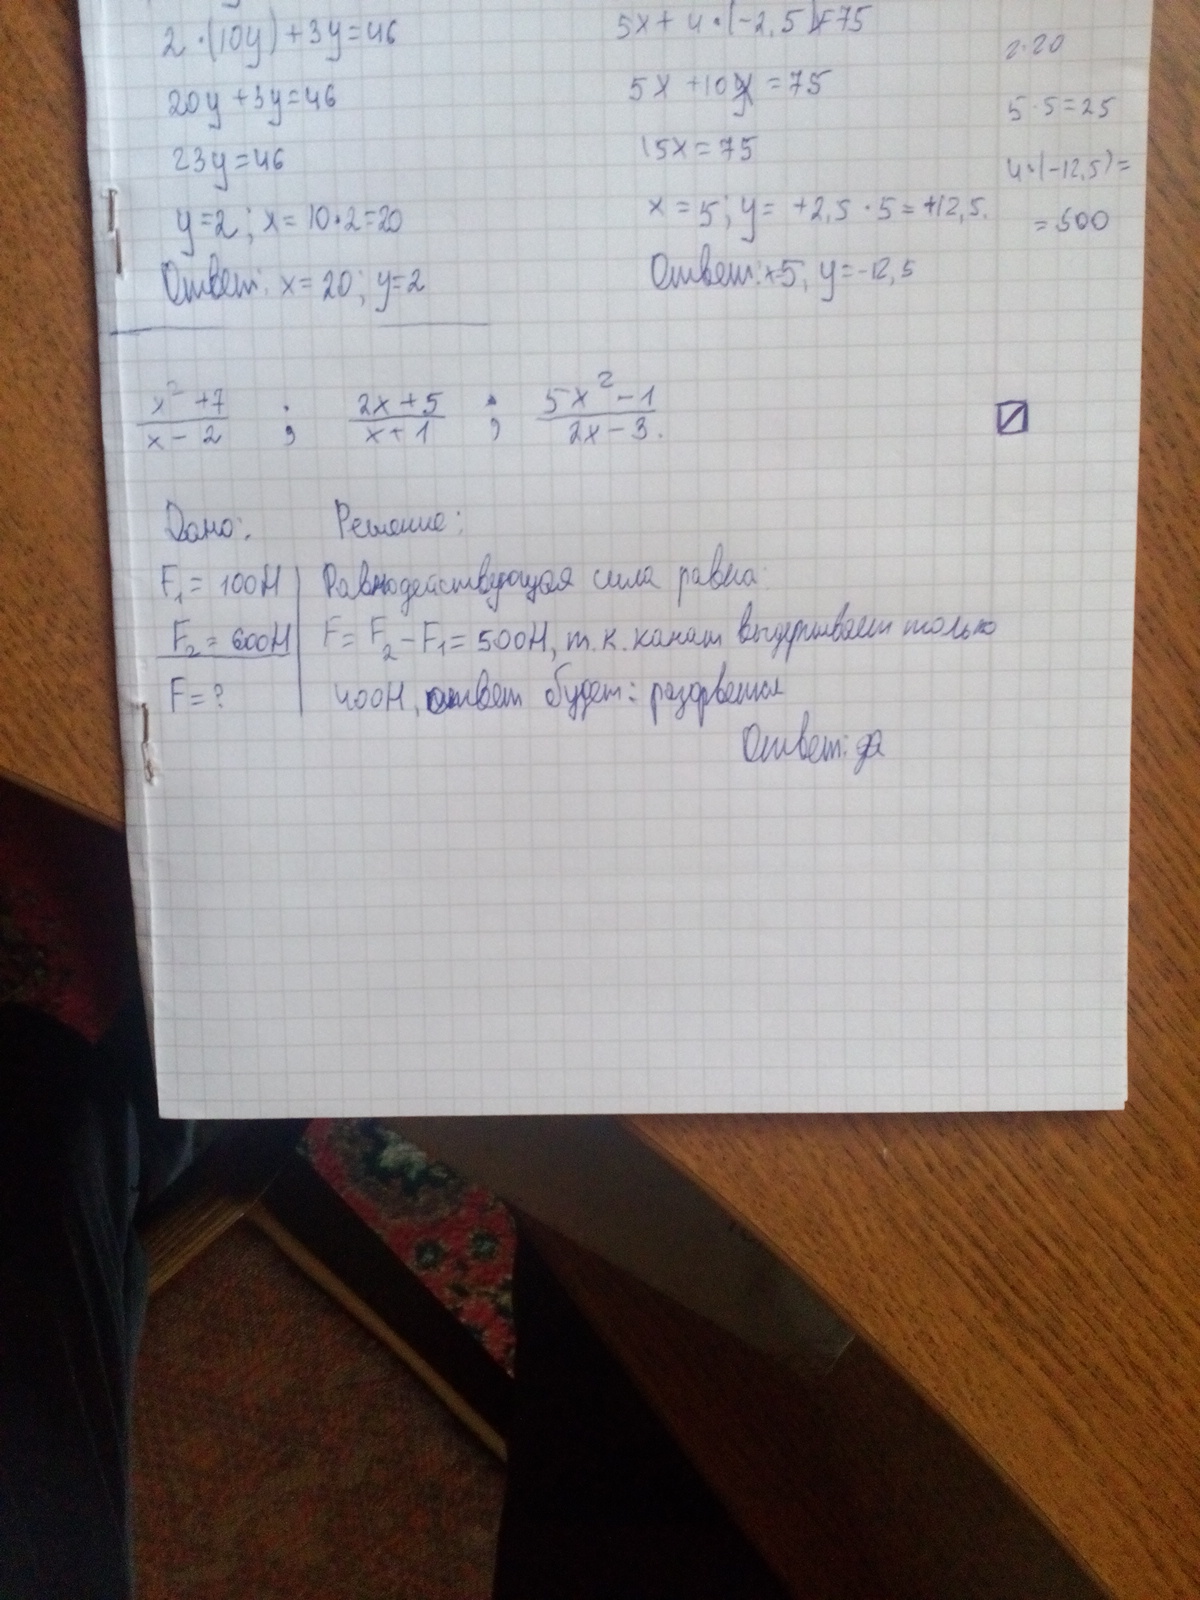 2·(10y)+3y=46
20y+3y=46
23y=46
y=2; x=10·2=20
Ответ: x=20; y=2
5x+4·(-2,5)=75
5x+10y=75
15x=75
x=5; y=+2,5·5=+12,5.
Ответ: x=5, y=-12,5
2·20
5·5=25
4·(-12,5)=
=500
x²+7/x-2 ; 2x+5/x+1 ; 5x²-1/2x-3.
Дано: Решение:
F₁=100Н Равнодействующая сила равна:
F₂=600Н F=F₂-F₁=500Н, т.к. канат выдерживает только
F=? 400Н, ответ будет: разорвется
Ответ: да